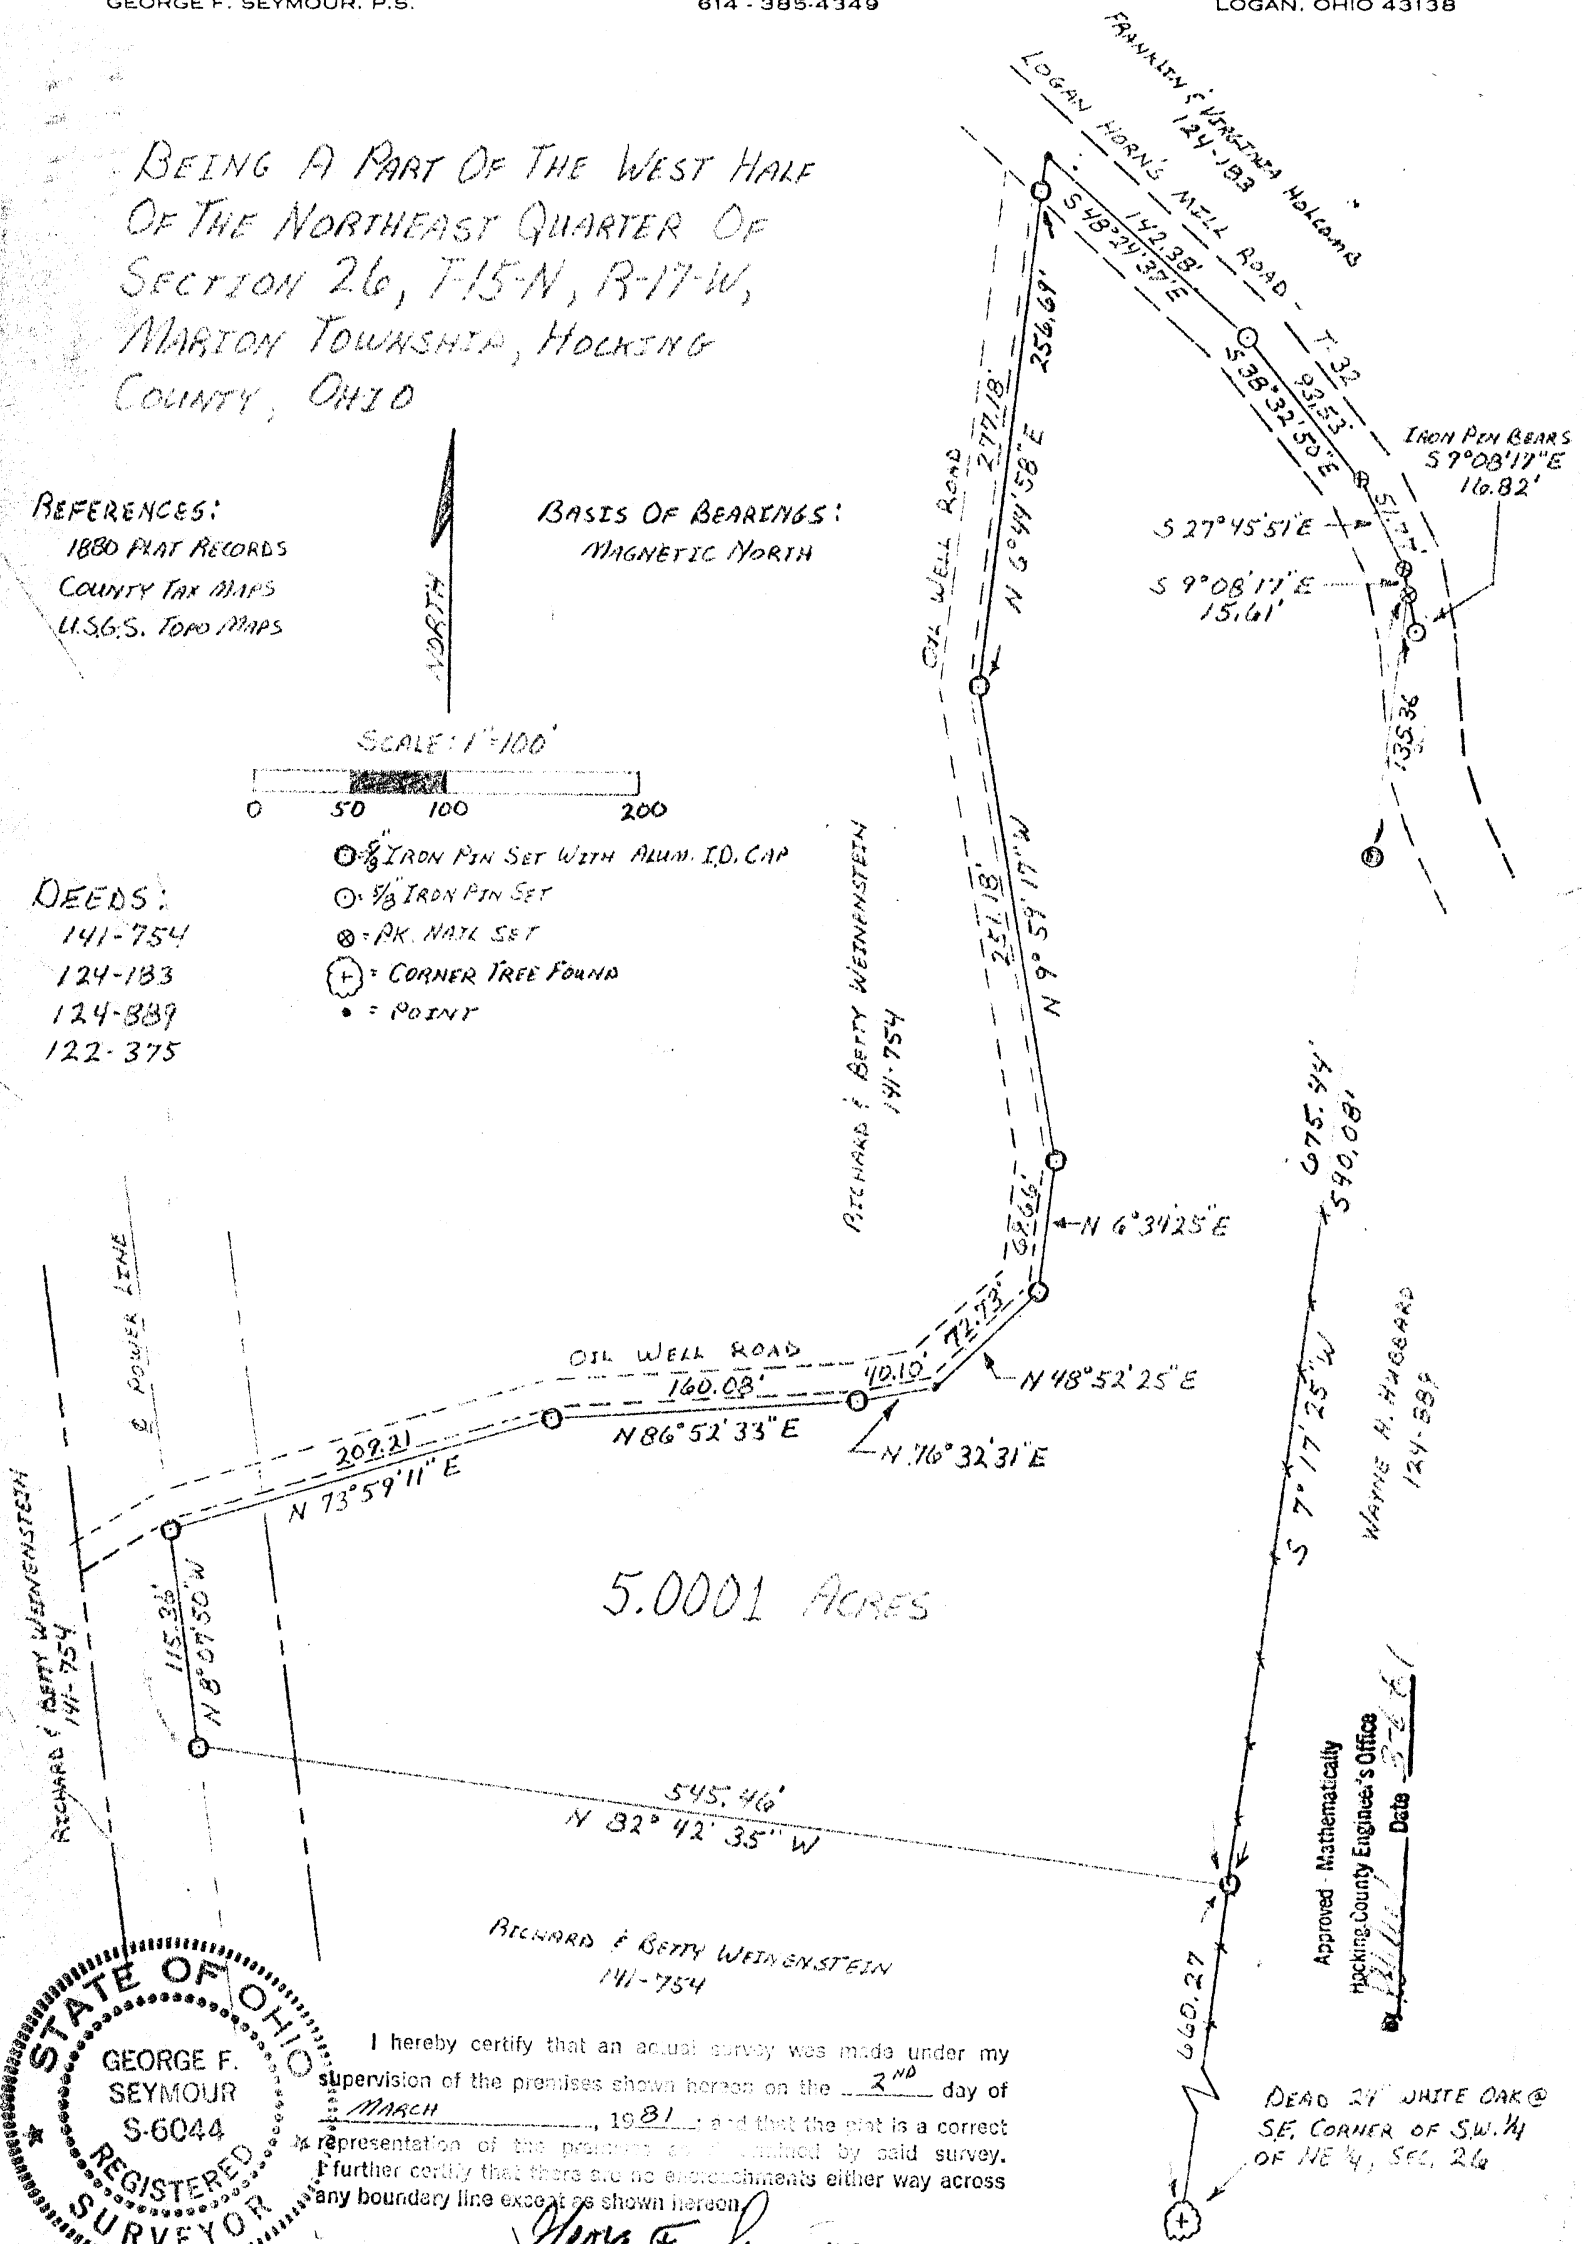 GEORGE F. SEYMOUR, P.S.
614-385-4349
LOGAN, OHIO 43138
BEING A PART OF THE WEST HALF
OF THE NORTHEAST QUARTER OF
SECTION 26, T-15-N, R-17-W,
MARION TOWNSHIP, HOCKING
COUNTY, OHIO
REFERENCES:
1880 PLAT RECORDS
COUNTY TAX MAPS
U.S.G.S. TOPO MAPS
NORTH
BASIS OF BEARINGS:
MAGNETIC NORTH
SCALE: 1"=100'
0 50 100 200
5/8" IRON PIN SET WITH ALUM. I.D. CAP
5/8" IRON PIN SET
= P.K. NAIL SET
= CORNER TREE FOUND
= POINT
DEEDS:
141-754
124-183
124-889
122-375
FRANKLIN & VIRGINIA HOLCOMB
124-183
LOGAN HORNS MILL ROAD - T-32
142.38'
S 48°24'37"E
93.53'
S 38°32'50"E
IRON PIN BEARS
S 9°08'17"E
16.82'
51.77'
S 27°45'51"E
S 9°08'17"E
15.61'
135.36
256.69'
277.18'
N 6°44'58"E
OIL WELL ROAD
251.18'
N 9°59'17"W
RICHARD & BETTY WEINENSTEIN
141-754
69.66'
N 6°34'25"E
72.73'
N 48°52'25"E
40.10'
N 76°32'31"E
OIL WELL ROAD
160.08'
N 86°52'33"E
209.21
N 73°59'11"E
℄ POWER LINE
RICHARD & BETTY WEINENSTEIN
141-754
115.36'
N 8°07'50"W
5.0001 ACRES
675.44'
540.08'
S 7°17'25"W
WAYNE H. HUBBARD
124-889
545.46'
N 82°42'35"W
RICHARD & BETTY WEINENSTEIN
141-754
660.27
Approved - Mathematically
Hocking County Engineer's Office
Date
DEAD 24" WHITE OAK @
S.E. CORNER OF S.W. 1/4
OF NE 1/4, SEC. 26
STATE OF OHIO
GEORGE F.
SEYMOUR
S-6044
REGISTERED
SURVEYOR
I hereby certify that an actual survey was made under my
supervision of the premises shown hereon on the 2ND day of
MARCH, 1981; and that the plat is a correct
representation of the premises as determined by said survey.
I further certify that there are no encroachments either way across
any boundary line except as shown hereon.
George F.